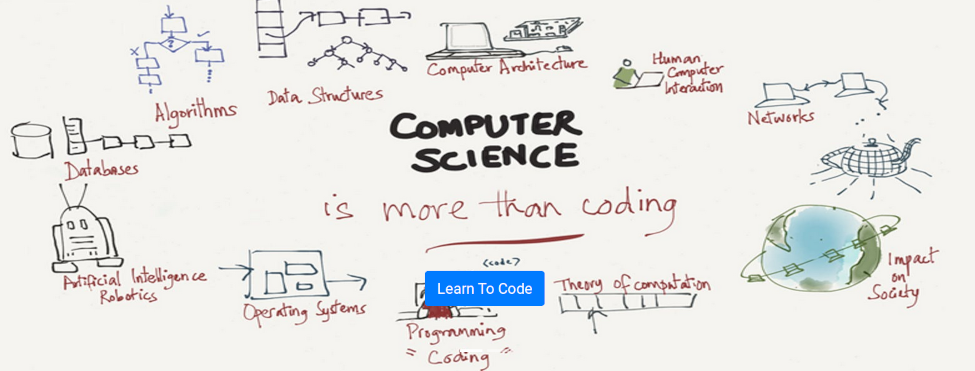 Algorithms
Data Structures
Computer Architecture
Human
Computer
Interaction
Networks
Databases
COMPUTER
SCIENCE
is more than coding
Artificial Intelligence
Robotics
Operating Systems
<code>
Learn To Code
Programming
" Coding "
Theory of computation
Impact
on
Society